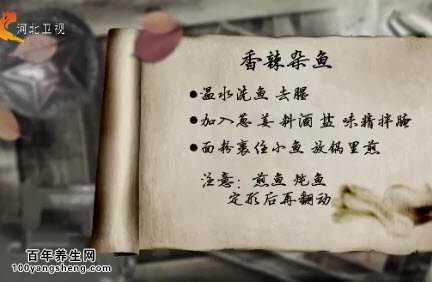 河北卫视
香辣杂鱼
●温水洗鱼 去腥
●加入葱 姜 料酒 盐 味精拌腌
●面粉裹住小鱼 放锅里煎
注意：煎鱼 炖鱼
定形后再翻动
百年养生网
100yangsheng.com